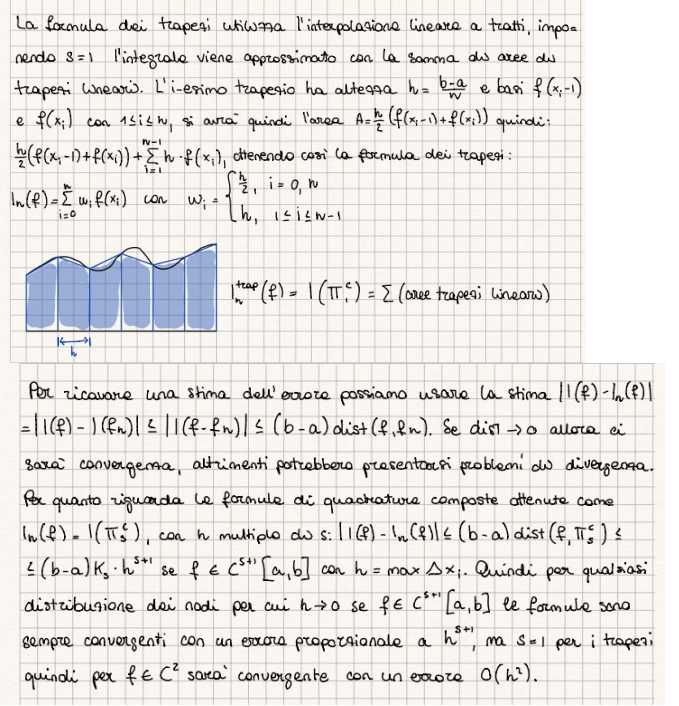 La formula dei trapezi utilizza l'interpolazione lineare a tratti, impo=
nendo s=1 l'integrale viene approssimato con la somma di aree di
trapezi lineari. L'i-esimo trapezio ha altezza h = \frac{b-a}{n} e basi f(x_i-1)
e f(x_i) con 1≤i≤n, si avrà quindi l'area A=\frac{h}{2}(f(x_i-1)+f(x_i)) quindi:
\frac{h}{2}(f(x_i-1)+f(x_i))+\sum_{i=1}^{n-1} h·f(x_i), ottenendo così la formula dei trapezi:
I_n(f)=\sum_{i=0}^{n} w_i f(x_i) con w_i = { \frac{h}{2}, i=0, n
h, 1≤i≤n-1
I_n^{trap}(f) = I(Π_1^c) = Σ (aree trapezi lineari)
h
Per ricavare una stima dell'errore possiamo usare la stima |I(f)-I_n(f)|
=|I(f)-I(f_n)| ≤ |I(f-f_n)| ≤ (b-a) dist(f,f_n). Se dist →0 allora ci
sarà convergenza, altrimenti potrebbero presentarsi problemi di divergenza.
Per quanto riguarda le formule di quadrature composte ottenute come
I_n(f) = I(Π_s^c), con n multiplo di s: |I(f)-I_n(f)| ≤ (b-a) dist(f,Π_s^c) ≤
≤(b-a) K_s · h^{s+1} se f ∈ C^{s+1}[a,b] con h = max Δx_i. Quindi per qualsiasi
distribuzione dei nodi per cui h→0 se f∈ C^{s+1}[a,b] le formule sono
sempre convergenti con un errore proporzionale a h^{s+1}, ma s=1 per i trapezi
quindi per f ∈ C^2 sarà convergente con un errore O(h^2).